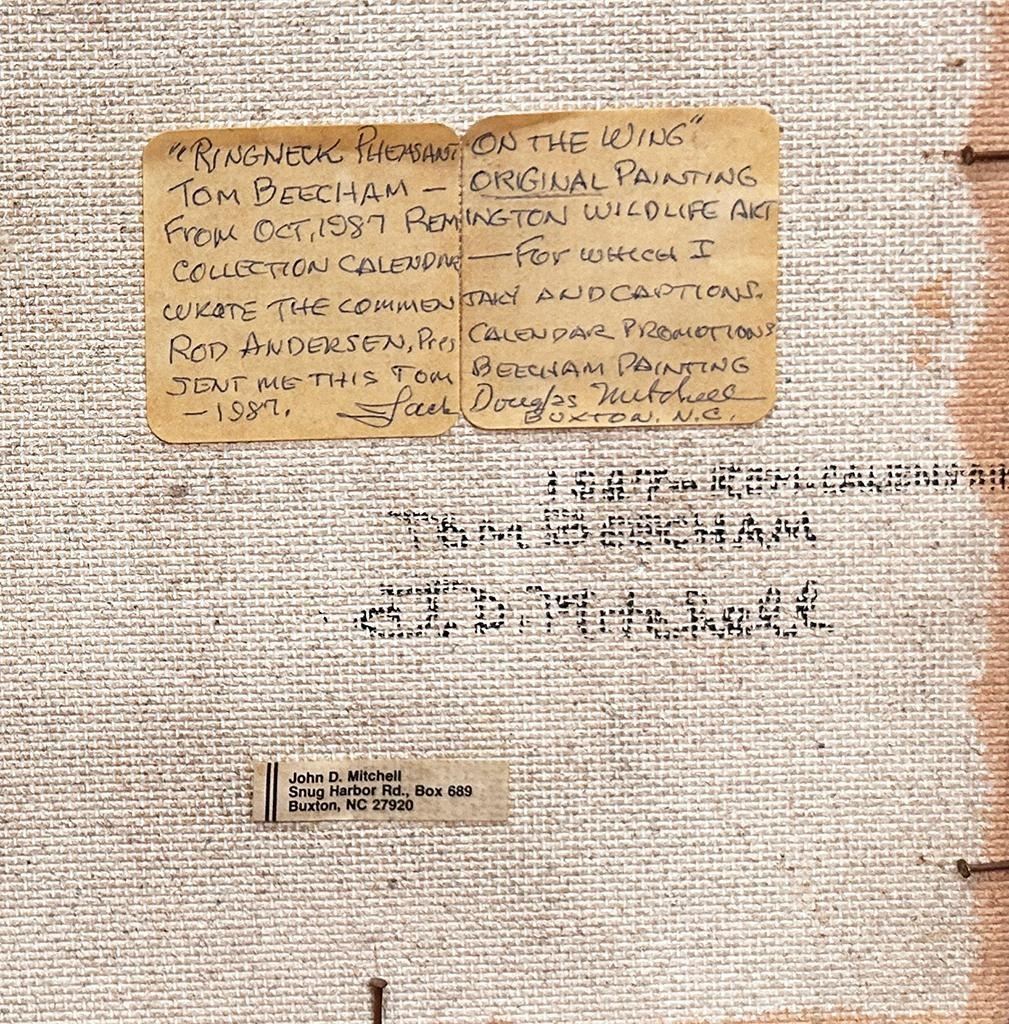 "RINGNECK PHEASANT ON THE WING"
TOM BEECHAM — ORIGINAL PAINTING
FROM OCT, 1987 REMINGTON WILDLIFE ART
COLLECTION CALENDAR — FOR WHICH I
WROTE THE COMMENTARY AND CAPTIONS.
ROD ANDERSEN, Pres CALENDAR PROMOTIONS
SENT ME THIS TOM BEECHAM PAINTING
— 1987. Jack Douglas Mitchell
BUXTON, N.C.
1987 - REM. CALENDAR
TOM BEECHAM
J.D. Mitchell
John D. Mitchell
Snug Harbor Rd., Box 689
Buxton, NC 27920